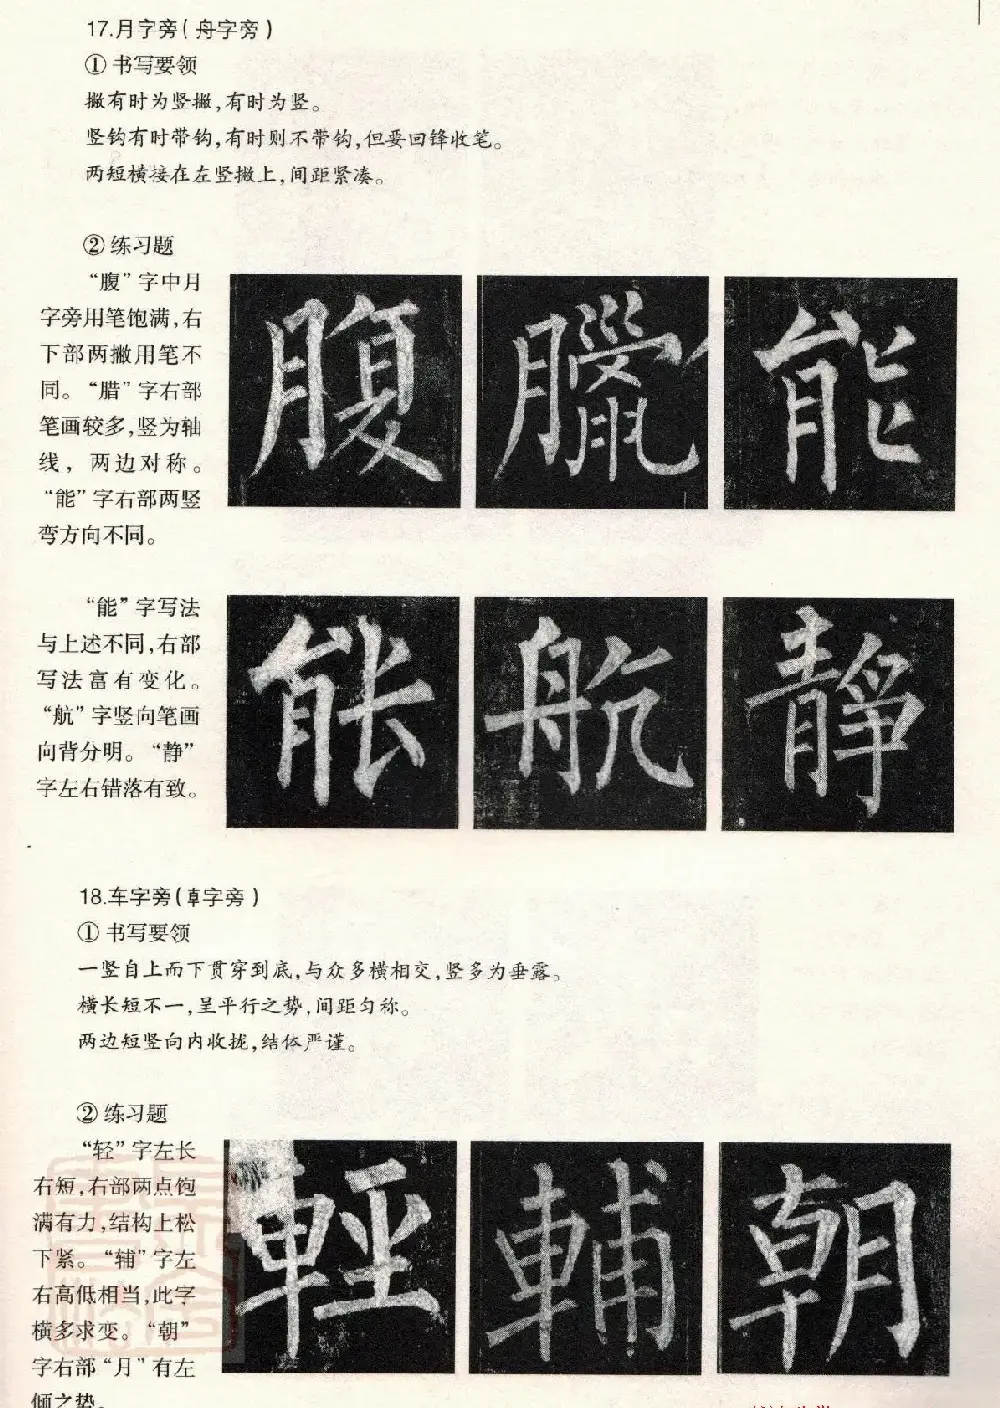 17.月字旁(舟字旁)
①书写要领
撇有时为竖撇,有时为竖。
竖钩有时带钩,有时则不带钩,但要回锋收笔。
两短横接在左竖撇上,间距紧凑。
②练习题
“腹”字中月
字旁用笔饱满,右
下部两撇用笔不
同。“腊”字右部
笔画较多,竖为轴
线，两边对称。
“能”字右部两竖
弯方向不同。
腹 臘 能
“能”字写法
与上述不同,右部
写法富有变化。
“航”字竖向笔画
向背分明。“静”
字左右错落有致。
能 航 靜
18.车字旁(卓字旁)
①书写要领
一竖自上而下贯穿到底,与众多横相交,竖多为垂露。
横长短不一,呈平行之势,间距匀称。
两边短竖向内收拢,结体严谨。
②练习题
“轻”字左长
右短,右部两点饱
满有力,结构上松
下紧。“辅”字左
右高低相当,此字
横多求变。“朝”
字右部“月”有左
倾之势。
輕 輔 朝